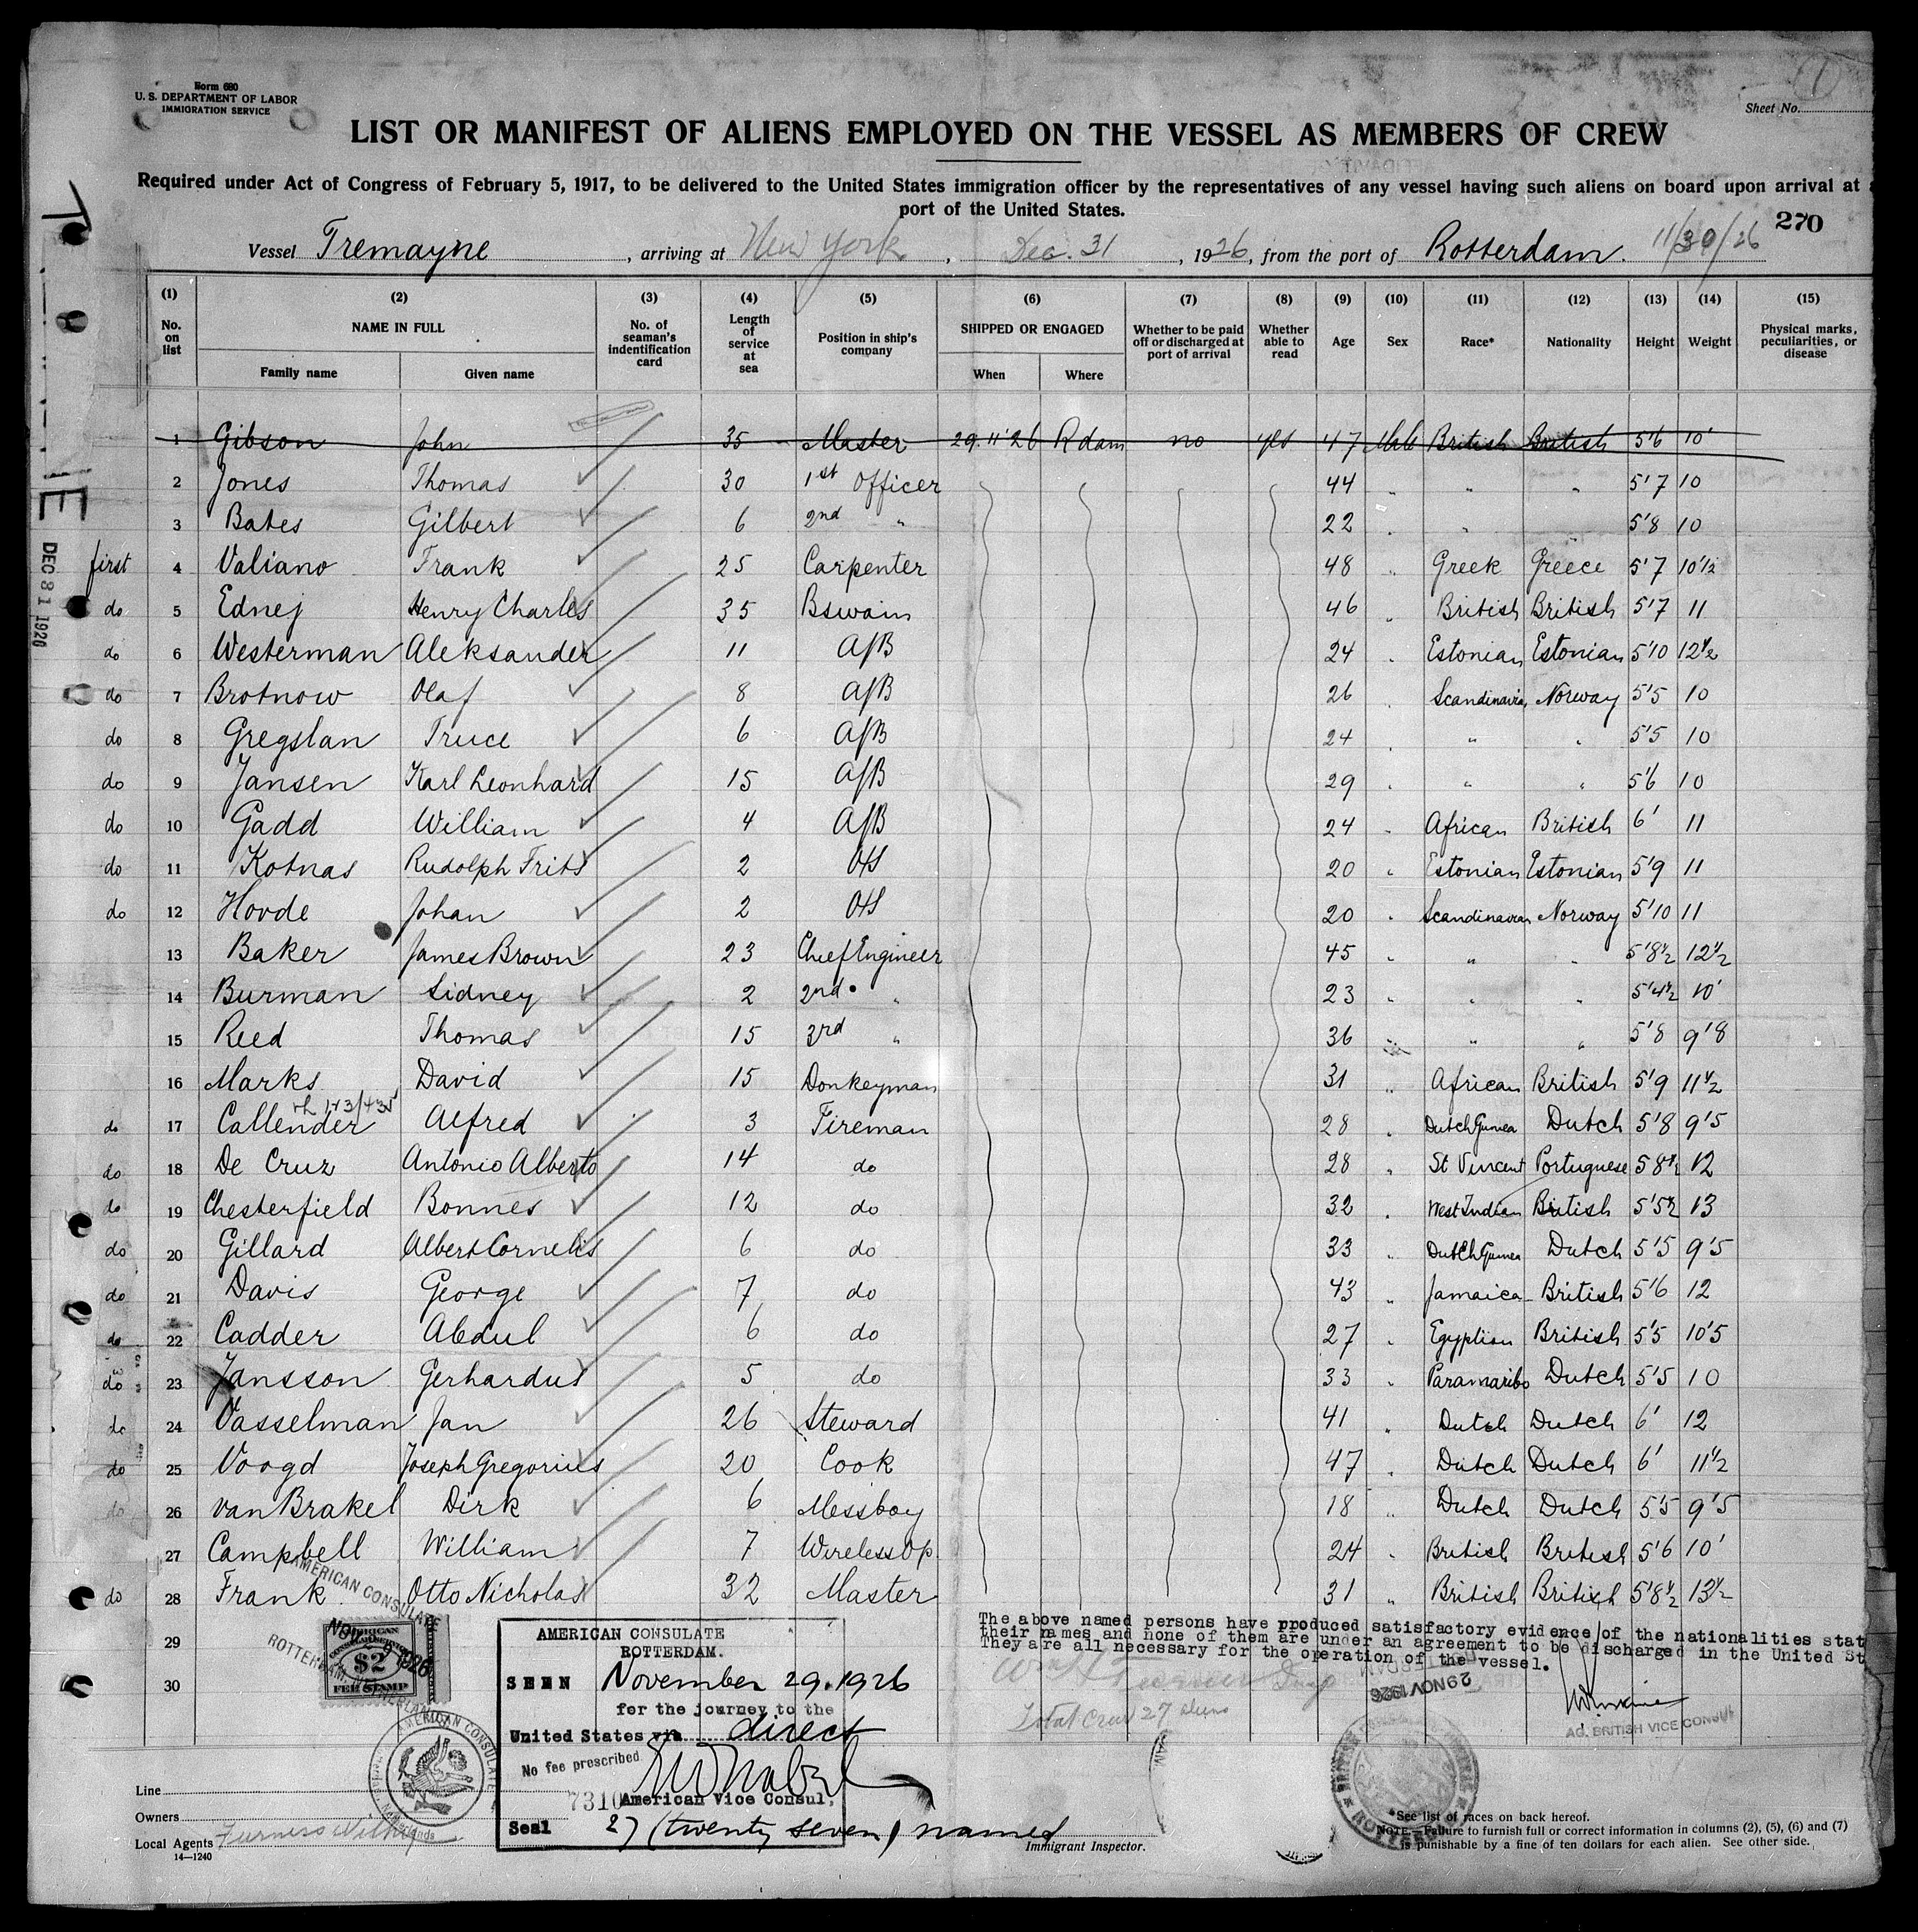 Form 680
U. S. DEPARTMENT OF LABOR
IMMIGRATION SERVICE
1
Sheet No.
LIST OR MANIFEST OF ALIENS EMPLOYED ON THE VESSEL AS MEMBERS OF CREW
Required under Act of Congress of February 5, 1917, to be delivered to the United States immigration officer by the representatives of any vessel having such aliens on board upon arrival at a
port of the United States.
270
Vessel Tremayne, arriving at New York, Dec. 31, 1926, from the port of Rotterdam. 11/30/26
(1) (2) (3) (4) (5) (6) (7) (8) (9) (10) (11) (12) (13) (14) (15)
No. on list NAME IN FULL Family name Given name No. of seaman's indentification card Length of service at sea Position in ship's company SHIPPED OR ENGAGED When Where Whether to be paid off or discharged at port of arrival Whether able to read Age Sex Race* Nationality Height Weight Physical marks, peculiarities, or disease
1 Gibson John 35 Master 29.11'26 Rdam no yes 47 Male British British 5'6 10'
2 Jones Thomas 30 1st Officer 44 " " " 5'7 10
3 Bates Gilbert 6 2nd " 22 " " 5'8 10
first 4 Valiano Frank 25 Carpenter 48 " Greek Greece 5'7 10½
do 5 Ednej Henry Charles 35 Bswain 46 " British British 5'7 11
do 6 Westerman Aleksander 11 A/B 24 " Estonian Estonian 5'10 12½
do 7 Brotnow Olaf 8 A/B 26 " Scandinavian Norway 5'5 10
do 8 Gregslan Truce 6 A/B 24 " " " 5'5 10
do 9 Jansen Karl Leonhard 15 A/B 29 " " " 5'6 10
do 10 Gadd William 4 A/B 24 " African British 6' 11
do 11 Kotnas Rudolph Frits 2 O/S 20 " Estonian Estonian 5'9 11
do 12 Hovde Johan 2 O/S 20 " Scandinavian Norway 5'10 11
13 Baker James Brown 23 Chief Engineer 45 " " " 5'8½ 12½
14 Burman Sidney 2 2nd " 23 " " " 5'4½ 10'
15 Reed Thomas 15 3rd " 36 " " " 5'8 9'8
16 Marks David 15 Donkeyman 31 " African British 5'9 11½
do 17 Callender Alfred 3 Fireman 28 " Dutch Guinea Dutch 5'8 9'5
do 18 De Cruz Antonio Alberto 14 do 28 " St Vincent Portuguese 5'8½ 12
do 19 Chesterfield Bonnes 12 do 32 " West Indian British 5'5½ 13
do 20 Gillard Albert Cornelis 6 do 33 " Dutch Guinea Dutch 5'5 9'5
do 21 Davis George 7 do 43 " Jamaica British 5'6 12
do 22 Cadder Abdul 6 do 27 " Egyptian British 5'5 10'5
do 23 Jansson Gerhardus 5 do 33 " Paramaribo Dutch 5'5 10
do 24 Vasselman Jan 26 Steward 41 " Dutch Dutch 6' 12
do 25 Voogd Joseph Gregorius 20 Cook 47 " Dutch Dutch 6' 11½
do 26 van Brakel Dirk 6 Messboy 18 " Dutch Dutch 5'5 9'5
27 Campbell William 7 Wireless Op. 24 " British British 5'6 10'
do 28 Frank Otto Nicholas 32 Master 31 " British British 5'8½ 13½
29
30
DEC 31 1926
AMERICAN CONSULATE
NOV 29 1926
ROTTERDAM, NETHERLANDS
$2
FEE STAMP
AMERICAN CONSULATE
ROTTERDAM.
SEEN November 29.1926
for the journey to the
United States via direct
No fee prescribed
7310 American Vice Consul,
Seal 27 (twenty seven) named
The above named persons have produced satisfactory evidence of the nationalities stat
their names and none of them are under an agreement to be discharged in the United St
They are all necessary for the operation of the vessel.
29 NOV 1926
Total Crew 27 aliens
AG. BRITISH VICE CONSUL
Line
Owners
Local Agents Furness Withy
14—1240
Immigrant Inspector.
*See list of races on back hereof.
NOTE.—Failure to furnish full or correct information in columns (2), (5), (6) and (7)
is punishable by a fine of ten dollars for each alien. See other side.